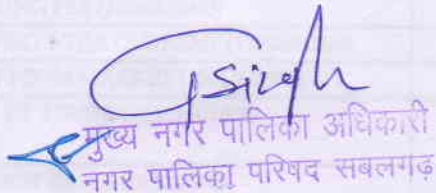 GSingh
मुख्य नगर पालिका अधिकारी
नगर पालिका परिषद सबलगढ़